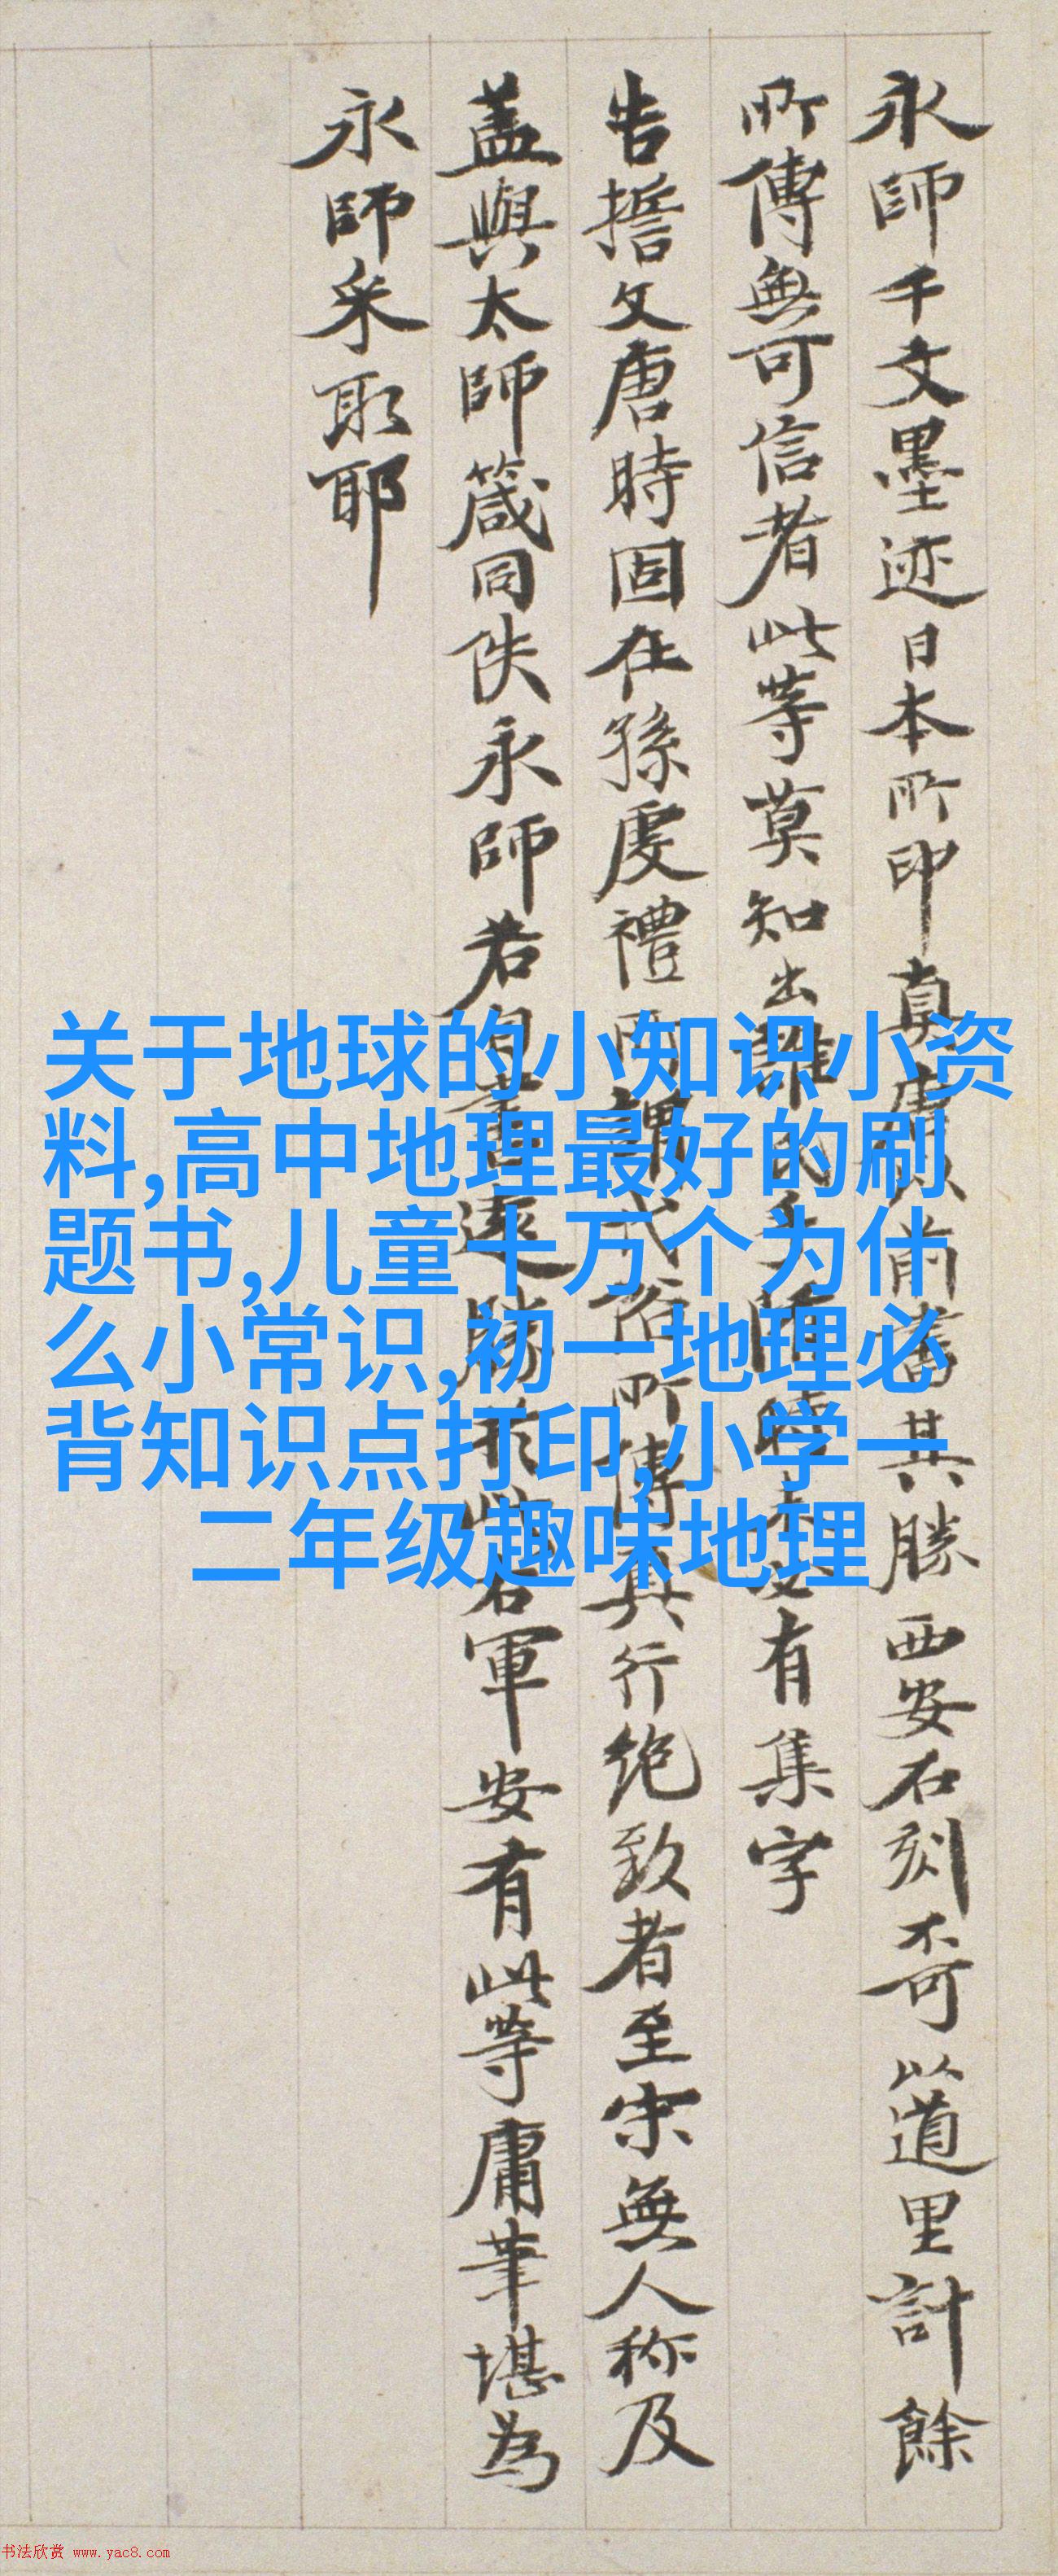 永師千文墨迹日本所印真其勝西安石刻不可以道里計餘
所傳無可信者此等莫知出誰手隋時未必有集字
告誓文唐時固在孫虔禮所謂代俗所傳真行絶致者至宋無人称及
盖與太師箴同佚永師若自書遠勝於此右軍安有此等庸筆堪為
永師采取耶
关于地球的小知识小资
料,高中地理最好的刷
题书,儿童十万个为什
么小常识,初一地理必
背知识点打印,小学一
二年级趣味地理
书法欣赏 www.yac8.com